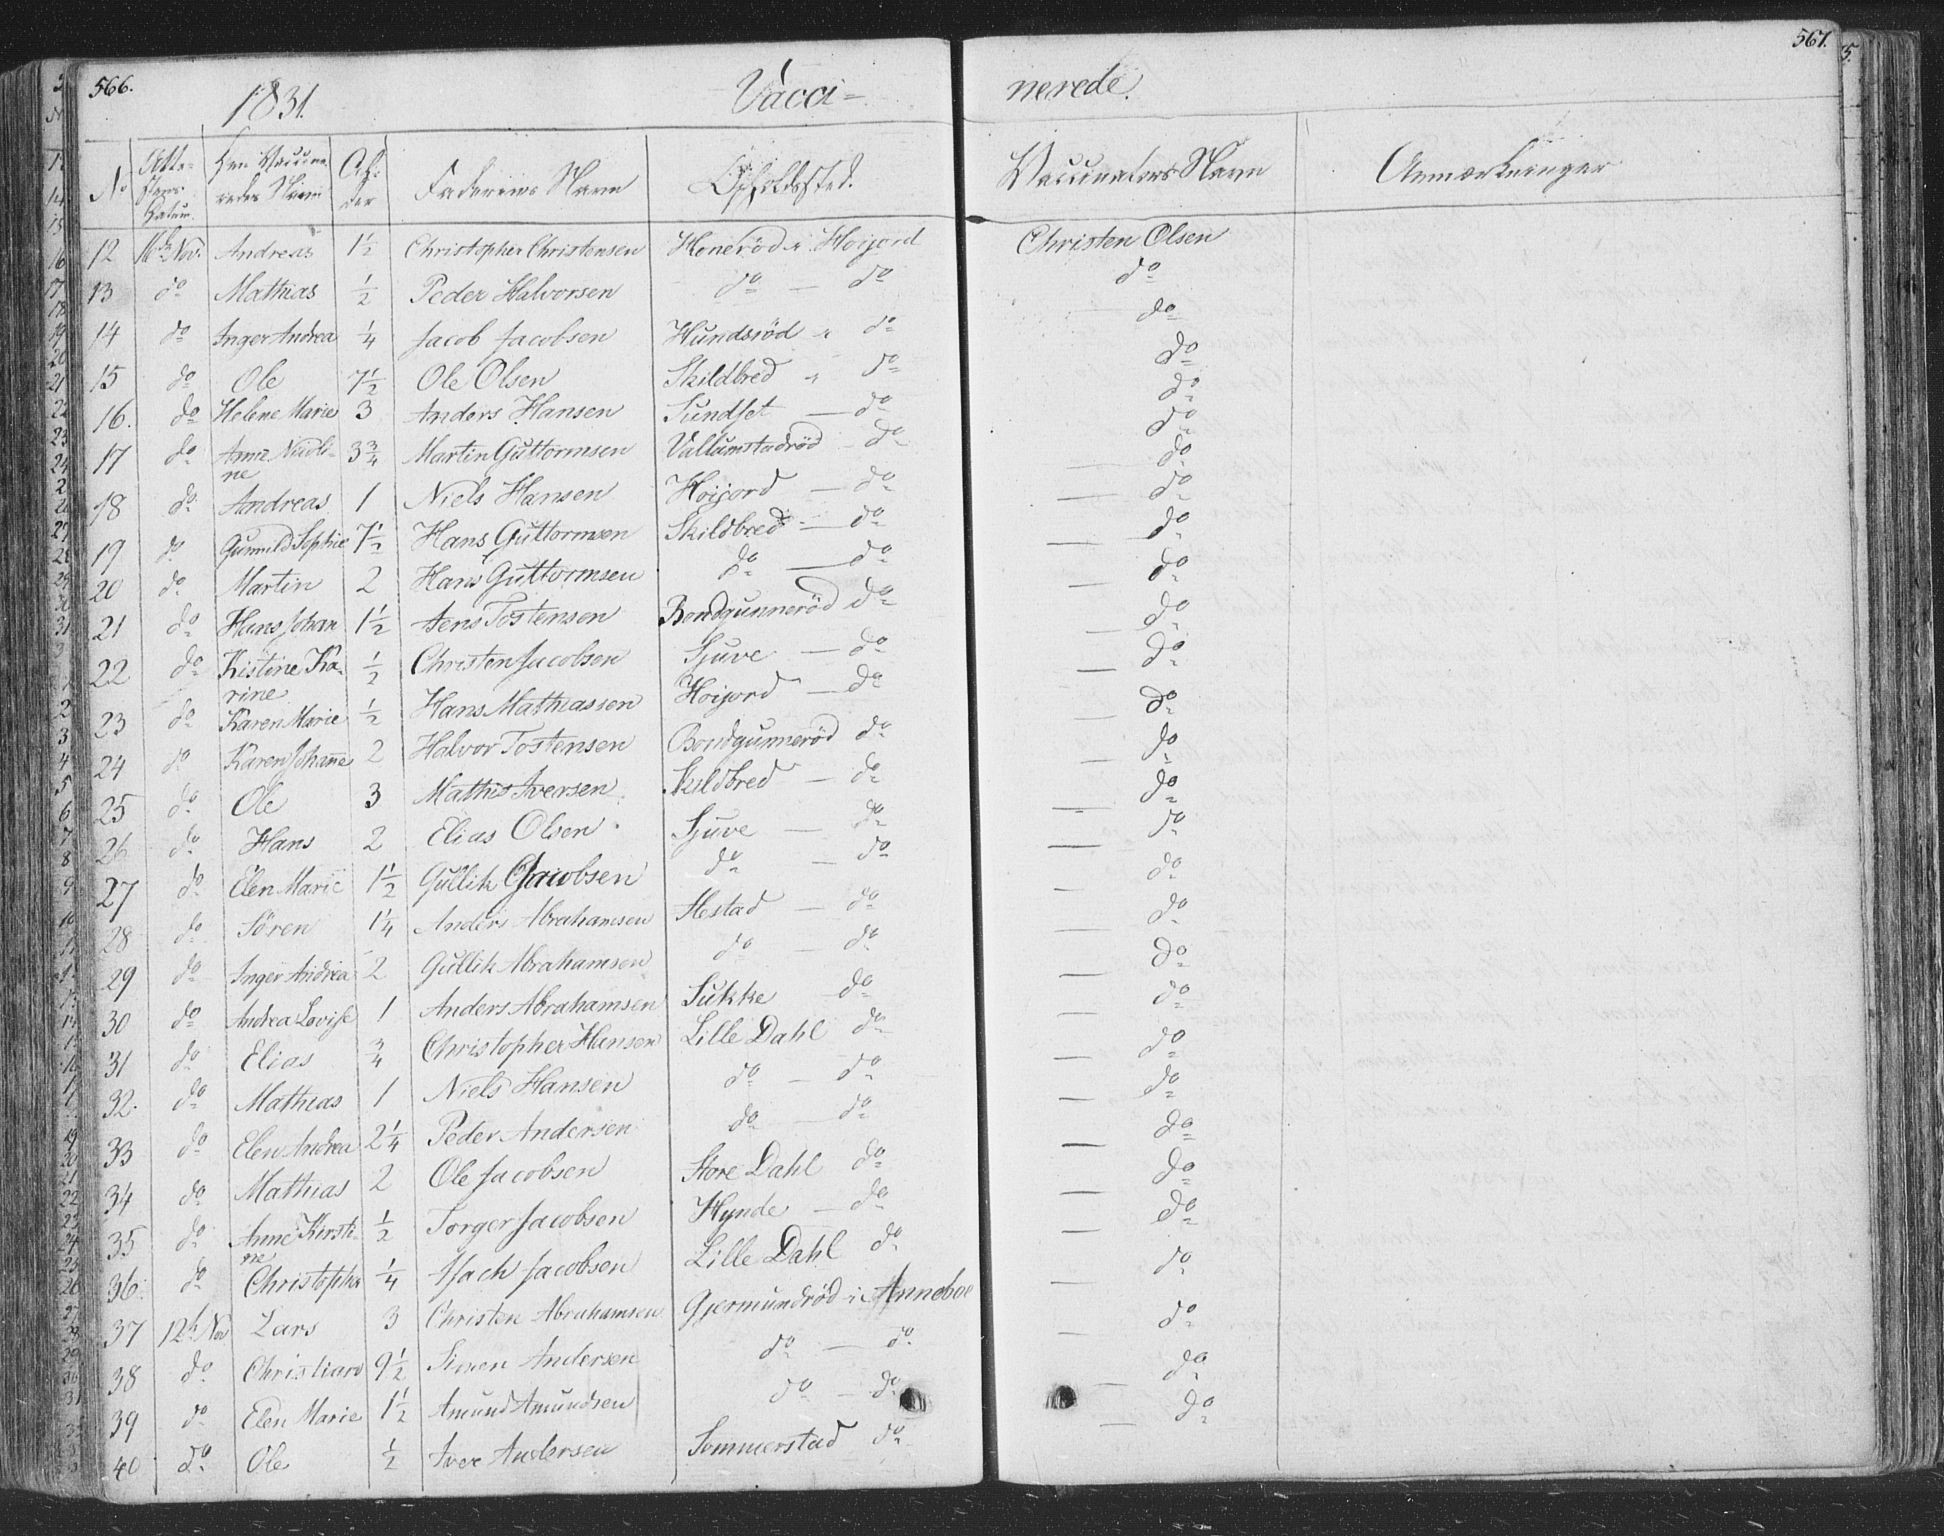 566.
1831.
Vacci-
nerede.
567.
No
Atte-
stens
Datum.
Den Vaccine-
redes Navn
Al-
der
Faderens Navn
Opholdssted.
Vaccinateurs Navn
Anmærkninger
12 16de Nov. Andreas 1½ Christopher Christensen Honeröd i Hoijord Christen Olsen
13 do Mathias ½ Peder Halvorsen do — do do
14 do Inger Andrea ¼ Jacob Jacobsen Hundsröd " do do
15 do Ole 7½ Ole Olsen Skildbred " do do
16. do Helene Marie 3 Anders Hansen Sundset — do do
17 do Anna Nicoli-
ne 3¾ Martin Guttormsen Vallumstadröd - do do
18 do Andreas 1 Niels Hansen Hoijord — do — do
19 do Gunnild Sophie 7½ Hans Guttormsen Skildbred — do — do
20 do Martin 2 Hans Guttormsen do — do — do
21 do Hans Johan 1½ Jens Tostensen Bondgunneröd do — do
22 do Kistine Ka-
rine ½ Christen Jacobsen Sjuve — do — do
23 do Karen Marie ½ Hans Mathiassen Hoijord — do — do
24 do Karen Johanne 2 Halvor Tostensen Bondgunneröd do — do
25 do Ole 3 Mathis Iversen Skildbred — do — do
26 do Hans 2 Elias Olsen Sjuve — do — do
27 do Elen Marie 1½ Gullik Jacobsen do — do — do
28 do Sören 1¼ Anders Abrahamsen Hestad — do — do
29 do Inger Andrea 2 Gullik Abrahamsen do — do — do
30 do Andrea Lovise 1 Anders Abrahamsen Sukke — do — do
31 do Elias ¾ Christopher Hansen Lille Dahl do — do
32. do Mathias 1 Niels Hansen do — do — do
33 do Elen Andrea 2¼ Peder Andersen do — do — do
34 do Mathias 2 Ole Jacobsen Store Dahl do — do
35 do Anne Kirsti-
ne ½ Torger Jacobsen Hynde — do — do
36. do Christopher ¼ Isach Jacobsen Lille Dahl do — do
37 12te Nov Lars 3 Christen Abrahamsen Gjermundröd i Anneboe — do
38 do Christian 9½ Simen Andersen do — do — do
39 do Elen Marie 1½ Amund Amundsen do — do do
40 do Ole ½ Iver Andersen Sommerstad do — do